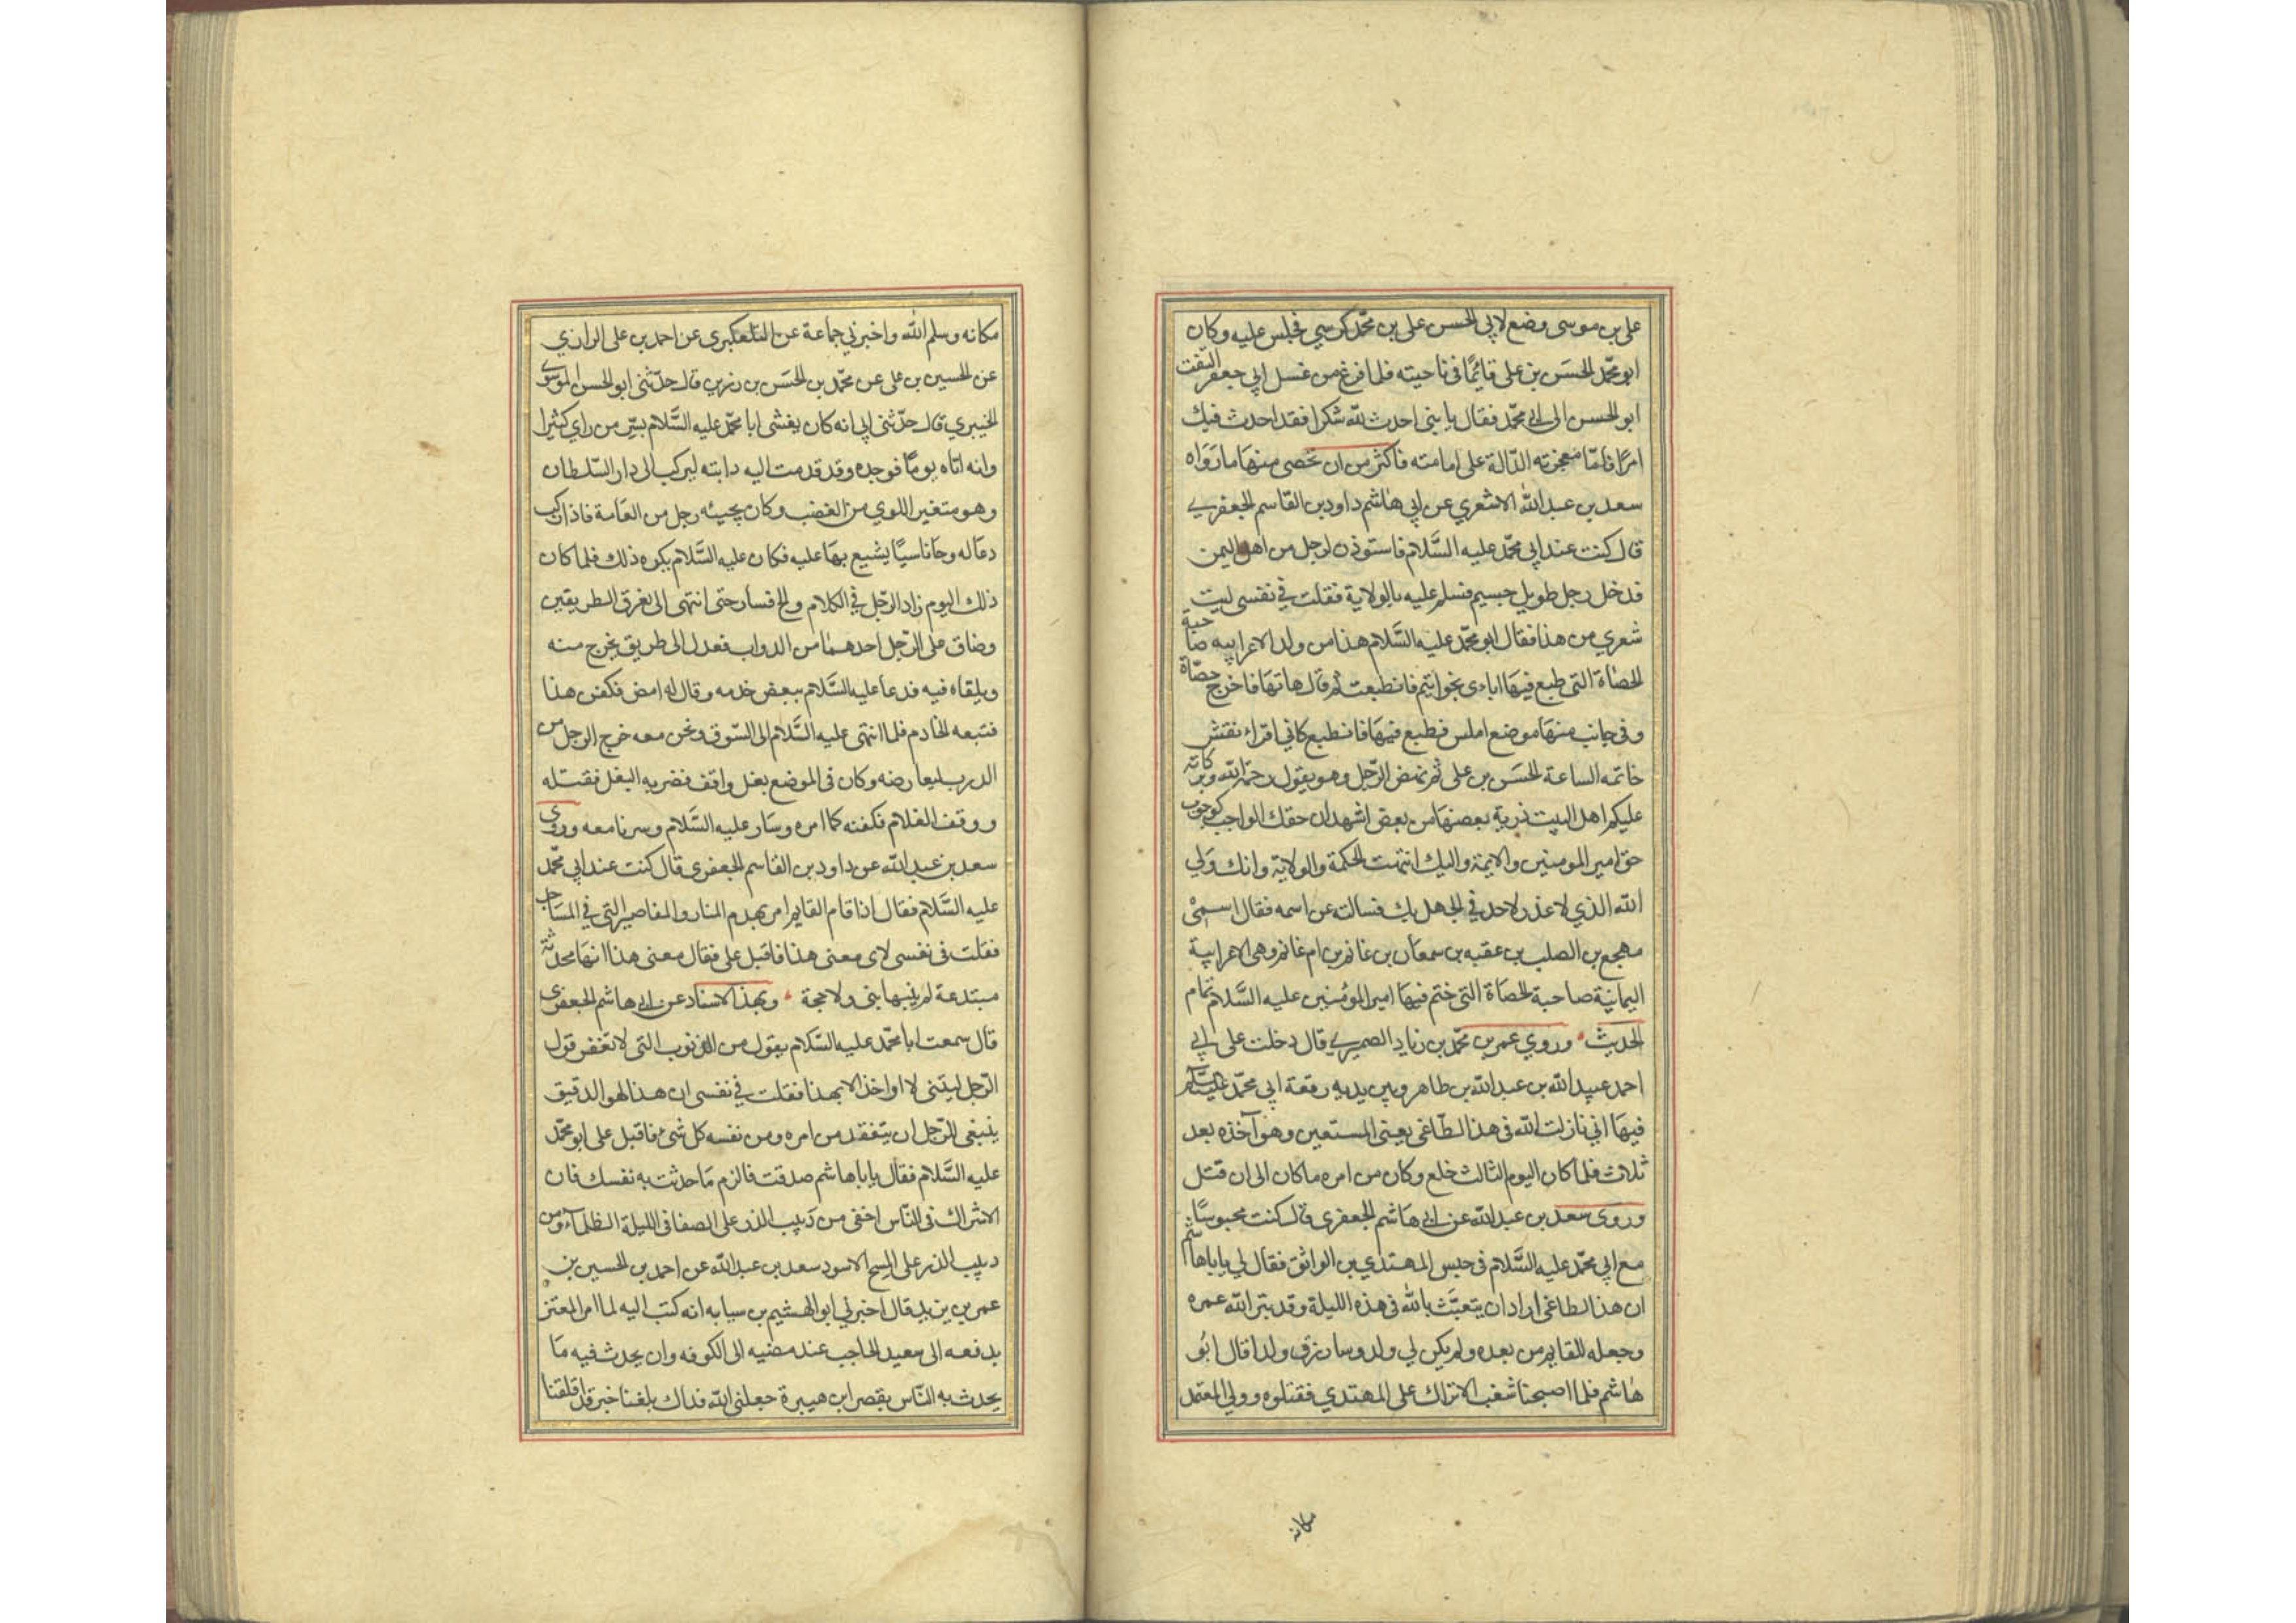 علي بن موسى وضع لابي الحسن علي بن محمد كرسي فجلس عليه وكان
ابو محمد الحسن بن علي قائما في ناحيته فلما فرغ من غسل ابي جعفر التفت
ابو الحسن الى ابي محمد فقال يا بني احدث لله شكرا فقد احدث فيك
امرا فامّا معجزته الدّالة على امامته فاكثر من ان تحصى منها ما رواه
سعد بن عبد الله الاشعري عن ابي هاشم داود بن القاسم الجعفري
قال كنت عند ابي محمد عليه السَّلام فاستوذن لرجل من اهل اليمن
فدخل رجل طويل جسيم فسلم عليه بالولاية فقلت في نفسي ليت
شعري من هذا فقال ابو محمد عليه السَّلام هذا من ولد الاعرابيه صاحبة
الحصاة التي طبع فيها اباءي بخواتيم فانطبعت ثم قال هاتها فاخرج حصاة
وفي جانب منها موضع املس فطبع فيها فانطبع كاني اقراء نقش
خاتمه الساعة الحسن بن علي ثم نهض الرّجل وهو يقول رحمة الله وبركاته
عليكم اهل البيت ذرية بعضها من بعض اشهد ان حقك الواجب كوجوب
حق امير المومنين والايمة واليك انتهت الحكمة والولاية وانك ولي
الله الذي لا عذر لاحد في الجهل بك فسالته عن اسمه فقال اسمى
مهجع بن الصلب بن عقبه بن سمعان بن غانم بن ام غانم وهى الاعرابية
اليمانيّة صاحبة الحصاة التي ختم فيها امير المومنين عليه السَّلام تمام
الحديث وروي عمر بن محمد بن زياد الصميري قال دخلت على ابي
احمد عبيد الله بن عبد الله بن طاهر وبين يديه رقعة ابي محمد عليه السّلام
فيها اني نازلت الله في هذا الطّاغي يعني المستعين وهو آخذه بعد
ثلاث فلما كان اليوم الثالث خلع وكان من امره ما كان الى ان قتل
وروى سعد بن عبد الله عن ابي هاشم الجعفري قال كنت محبوسا
مع ابي محمد عليه السَّلام في حبس المهتدي بن الواثق فقال لي يا با هاشم
ان هذا الطاغي اراد ان يتعبث بالله في هذه الليلة وقد بتر الله عمره
وجعله للقايم من بعده ولم يكن لي ولد وسارزق ولدا قال ابو
هاشم فلما اصبحنا شغب الاتراك على المهتدي فقتلوه وولي المعتمد
مكانه
مكانه وسلم الله واخبرني جماعة عن التلعكبري عن احمد بن علي الرازي
عن الحسين بن علي عن محمد بن الحسن بن رزين قال حدّثني ابو الحسن الموسوي
الخيبري قال حدّثني ابي انه كان يغشى ابا محمد عليه السَّلام بسرّ من راي كثيرا
وانه اتاه يوما فوجده وقد قدمت اليه دابته ليركب الى دار السّلطان
وهو متغير اللوي من الغضب وكان يجيئه رجل من العامة فاذا ركب
دعا له وجا ناسيّا يشيع بها عليه فكان عليه السَّلام يكره ذلك فلما كان
ذلك اليوم زاد الرّجل في الكلام والح فسار حتى انتهى الى مفرق الطريقين
وضاق على الرّجل احدهما من الدواب فعدل الى طريق يخرج منه
ويلقاه فيه فدعا عليه السَّلام ببعض خدمه وقال له امض فكفن هذا
فتبعه الخادم فلما انتهى عليه السَّلام الى السّوق ونحن معه خرج الرجل من
الدرب ليعارضه وكان في الموضع بغل واقف فضربه البغل فقتله
ووقف الغلام فكفنه كما امره وسار عليه السَّلام وسرنا معه وروي
سعد بن عبد الله عن داود بن القاسم الجعفري قال كنت عند ابي محمد
عليه السَّلام فقال اذا قام القايم امر بهدم المنار والمقاصير التي في المساجد
فقلت في نفسي لاى معنى هذا فاقبل علي فقال معنى هذا انها محدثة
مبتدعة لم يبنها نبي ولا حجة وبهذا الاسناد عن ابي هاشم الجعفري
قال سمعت ابا محمد عليه السَّلام يقول من الذنوب التي لا تغفر قول
الرّجل ليتني لا اواخذ الا بهذا فقلت في نفسي ان هذا لهو الدقيق
ينبغي للرّجل ان يتفقد من امره ومن نفسه كل شئ فاقبل علي ابو محمد
عليه السَّلام فقال يا با هاشم صدقت فالزم ما حدثت به نفسك فان
الاشراك في النّاس اخفى من دبيب الذر على الصفا في الليلة الظلماء ومن
دبيب الذر على المسح الاسود سعد بن عبد الله عن احمد بن الحسين بن
عمر بن يزيد قال اخبرني ابو الهشيم بن سيابه انه كتب اليه لما امر المعتز
بدفعه الى سعيد الحاجب عند مضيه الى الكوفه وان يحدث فيه ما
يحدث به النّاس بقصر ابن هبيرة جعلني الله فداك بلغنا خبر قد اقلقنا